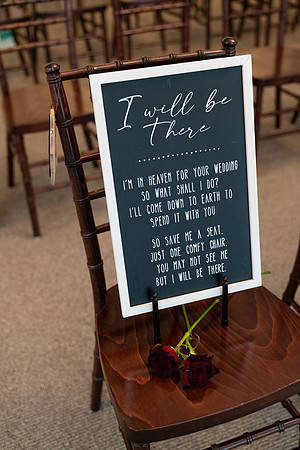 I will be
there
I'M IN HEAVEN FOR YOUR WEDDING
SO WHAT SHALL I DO?
I'LL COME DOWN TO EARTH TO
SPEND IT WITH YOU
SO SAVE ME A SEAT,
JUST ONE COMFY CHAIR.
YOU MAY NOT SEE ME
BUT I WILL BE THERE.